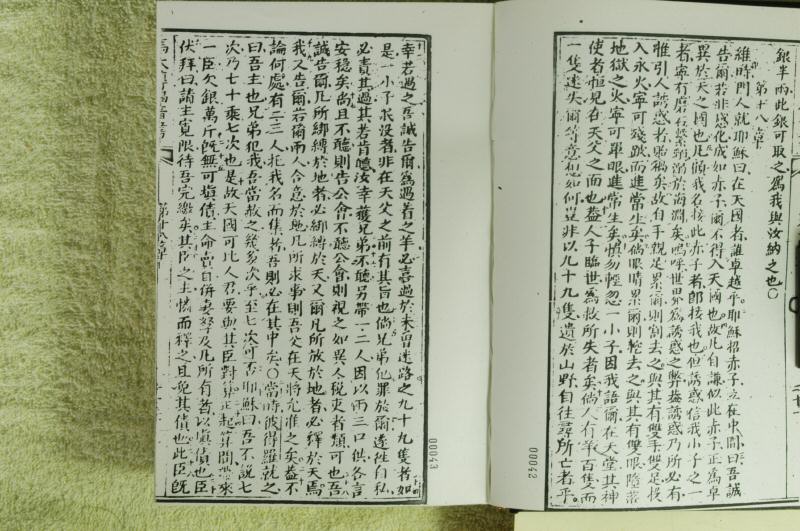 銀半兩此銀可取之爲我與汝納之也〇
第十八章
維時門人就耶穌曰在天國者誰卓越乎耶穌招赤子立在中間曰吾誠
告爾若非感化成如赤子爾不得入天國也故凡自謙似此赤子正爲卓
異於天之國也凡顧我名接此赤子者卽接我也但誘惑信我小子之一
者寧有磨石繫頸溺於海淵矣嗚呼世界爲誘惑之弊蓋誘惑乃所必有
惟引人誘惑者貽禍矣故自手親足累爾則割去之與其有雙手雙足投
入永火寧可殘跛而進常生矣倘眼睛累爾則挖去之與其有雙眼墮落
地獄之火寧可單眼進常生矣愼勿輕忽一小子因我語爾在天堂其神
使者恒見在天父之面也蓋人子臨世爲救所失者矣倘人有羊百隻而
一隻迷失爾等意想如何豈非以九十九隻遺於山野自往尋所亡者乎
幸若遇之吾誠告爾爲遇着之羊必喜過於未曾迷路之九十九隻者如
是一小子求沒者非在天父之前有其旨也倘兄弟犯罪於爾遂往自私
必責其過其若肯聽汝幸獲兄弟不聽另帶一二人因以兩三口供各言
安穩矣尚且不聽則告公會不聽公會則視之如異人稅吏者類可也吾
誠告爾凡所綁縛於地者必綁縛於天又爾凡所放於地者必釋於天焉
我又告爾若爾兩人合意於地凡所求事則吾父在天將允准之矣蓋不
論何處有二三人托我名而集者吾則必在其中矣〇當時彼得羅就之
曰吾主也兄弟犯我吾當赦之幾多次乎至七次可否耶穌曰吾不說七
次乃七十乘七次也是故天國可比人君要與其臣對算正起算間帶來
一臣欠銀萬斤旣無可塡償主命賣自併妻孥及凡所有者以塡債也臣
伏拜曰請主寬限待吾完繳矣其臣之主憐而釋之且免其債也此臣旣
第十八章
00043
00042